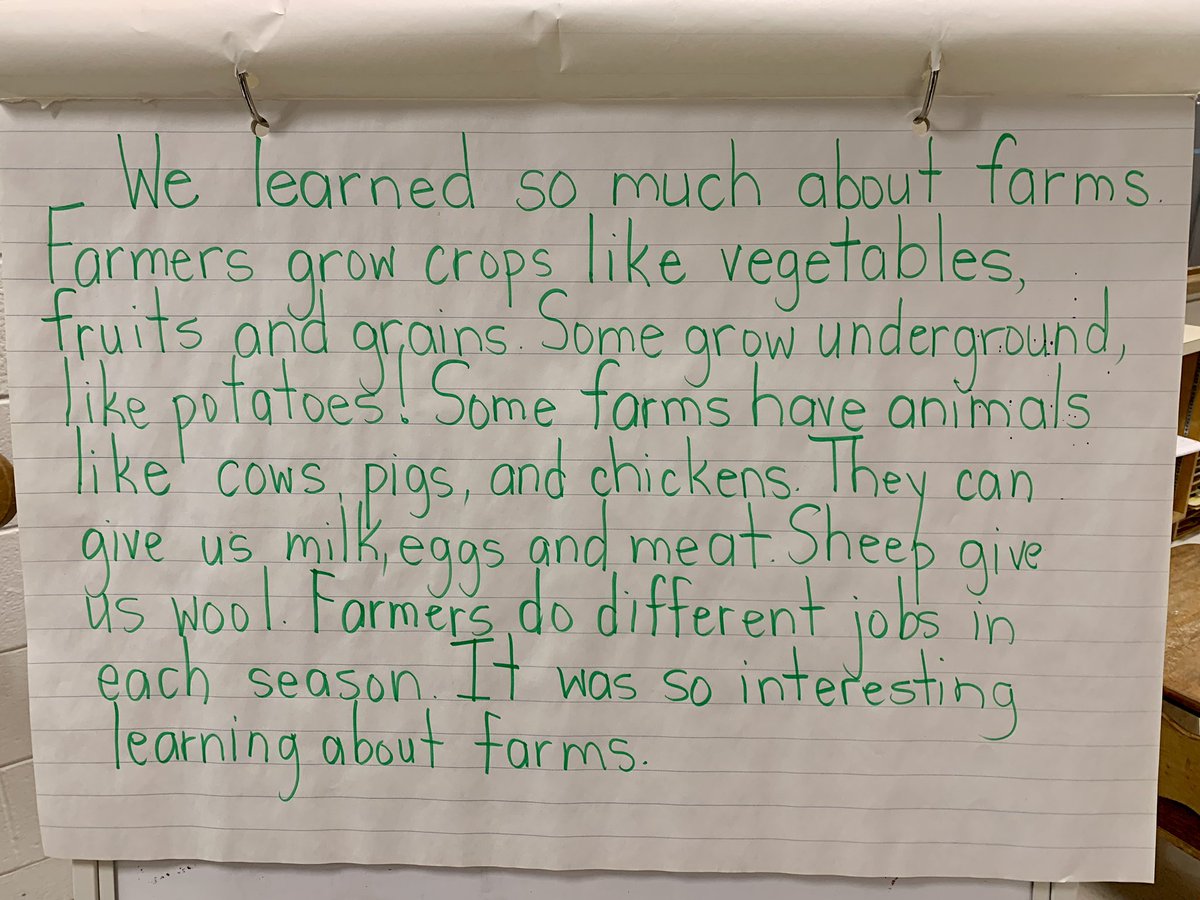 We learned so much about farms.
Farmers grow crops like vegetables,
fruits and grains. Some grow underground,
like potatoes! Some farms have animals
like cows, pigs, and chickens. They can
give us milk, eggs and meat. Sheep give
us wool. Farmers do different jobs in
each season. It was so interesting
learning about farms.